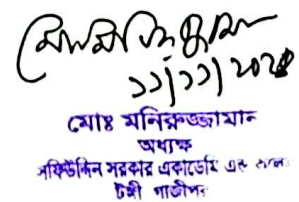 ১১/১১/২০২৪
মোঃ মনিরুজ্জামান
অধ্যক্ষ
সফিউদ্দিন সরকার একাডেমি এন্ড কলেজ
টঙ্গী গাজীপুর